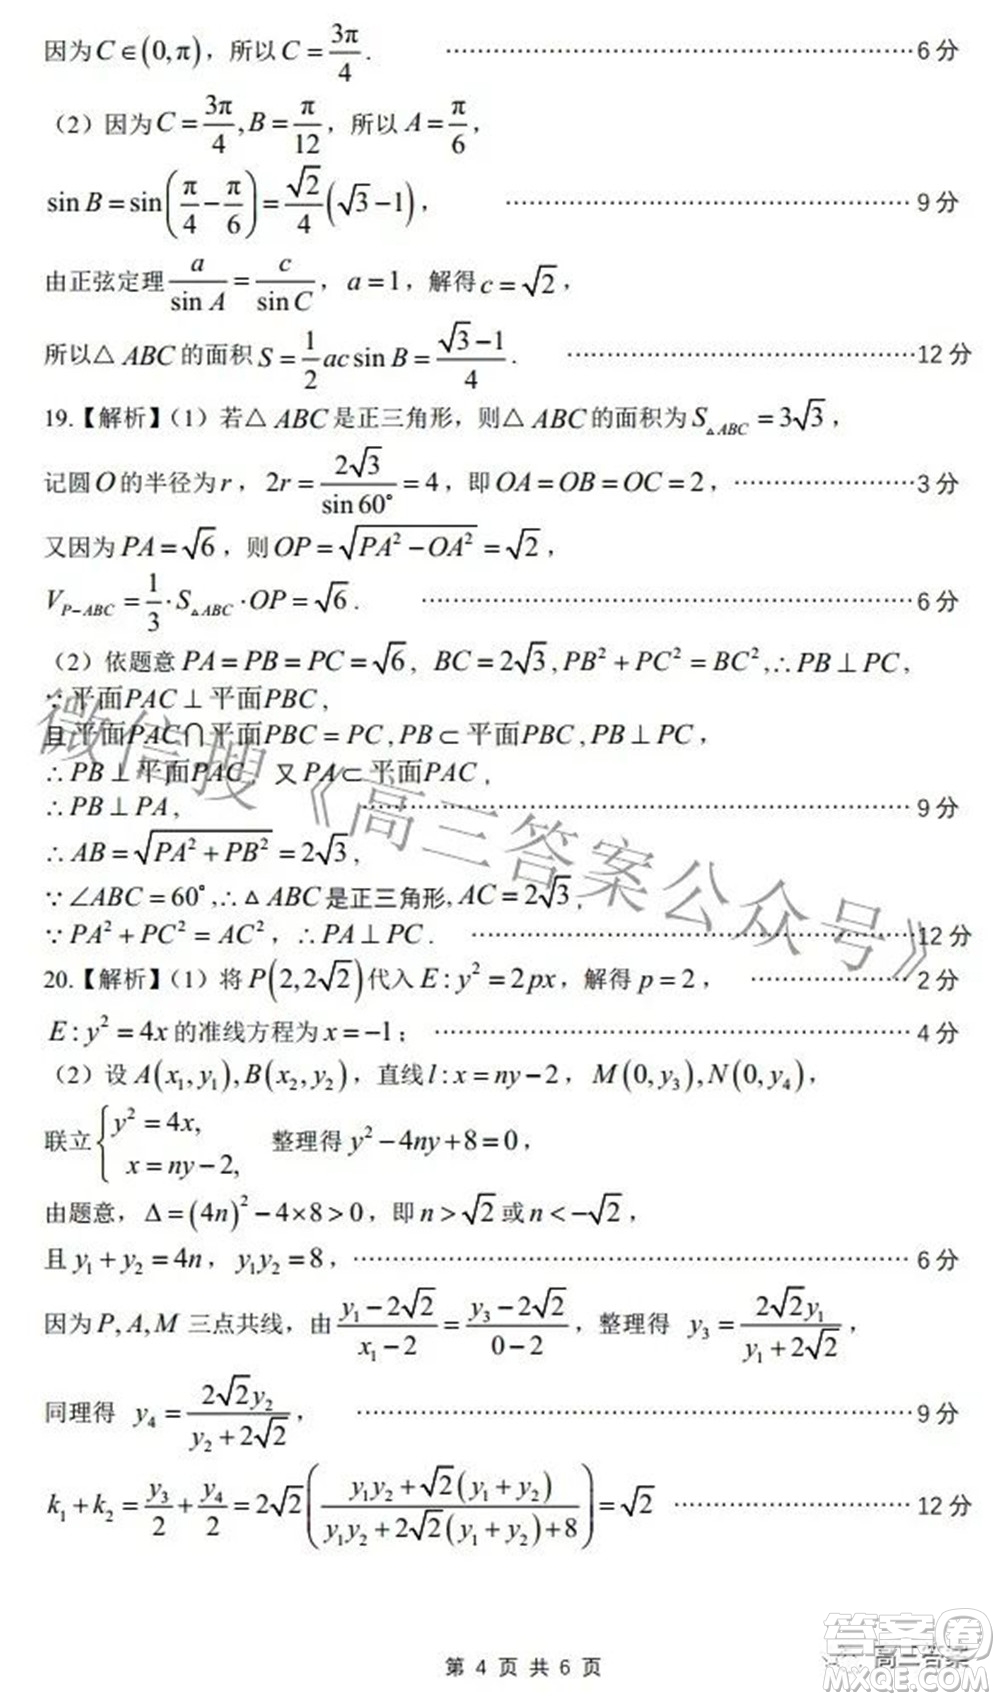 因为C∈(0,π)，所以C=3π/4. ……6分
（2）因为C=3π/4,B=π/12，所以A=π/6，
sinB=sin(π/4−π/6)=√2/4(√3−1)， ……9分
由正弦定理a/sinA=c/sinC，a=1，解得c=√2，
所以△ABC的面积S=1/2acsinB=(√3−1)/4. ……12分
19.【解析】（1）若△ABC是正三角形，则△ABC的面积为S△ABC=3√3，
记圆O的半径为r，2r=2√3/sin60°=4，即OA=OB=OC=2，……3分
又因为PA=√6，则OP=√(PA²−OA²)=√2，
V_{P−ABC}=1/3·S△ABC·OP=√6. ……6分
（2）依题意PA=PB=PC=√6, BC=2√3,PB²+PC²=BC²,∴PB⊥PC,
∵平面PAC⊥平面PBC,
且平面PAC∩平面PBC=PC,PB⊂平面PBC,PB⊥PC,
∴PB⊥平面PAC，又PA⊂平面PAC,
∴PB⊥PA, ……9分
∴AB=√(PA²+PB²)=2√3,
∵∠ABC=60°,∴△ABC是正三角形,AC=2√3,
∵PA²+PC²=AC²，∴PA⊥PC. ……12分
20.【解析】（1）将P(2,2√2)代入E:y²=2px，解得p=2， ……2分
E:y²=4x的准线方程为x=−1； ……4分
（2）设A(x₁,y₁),B(x₂,y₂)，直线l:x=ny−2，M(0,y₃),N(0,y₄)，
联立{y²=4x, x=ny−2, 整理得y²−4ny+8=0，
由题意，Δ=(4n)²−4×8>0，即n>√2或n<−√2，
且y₁+y₂=4n，y₁y₂=8，……6分
因为P,A,M三点共线，由(y₁−2√2)/(x₁−2)=(y₃−2√2)/(0−2)，整理得 y₃=2√2y₁/(y₁+2√2)，
同理得 y₄=2√2y₂/(y₂+2√2)， ……9分
k₁+k₂=y₃/2+y₄/2=2√2((y₁y₂+√2(y₁+y₂))/(y₁y₂+2√2(y₁+y₂)+8))=√2 ……12分
微信搜《高三答案公众号》
第 4 页 共 6 页
答案卷
高三答案